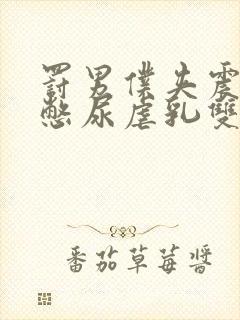 罰男僕失震
憋尿虐乳雙
番茄草莓醬